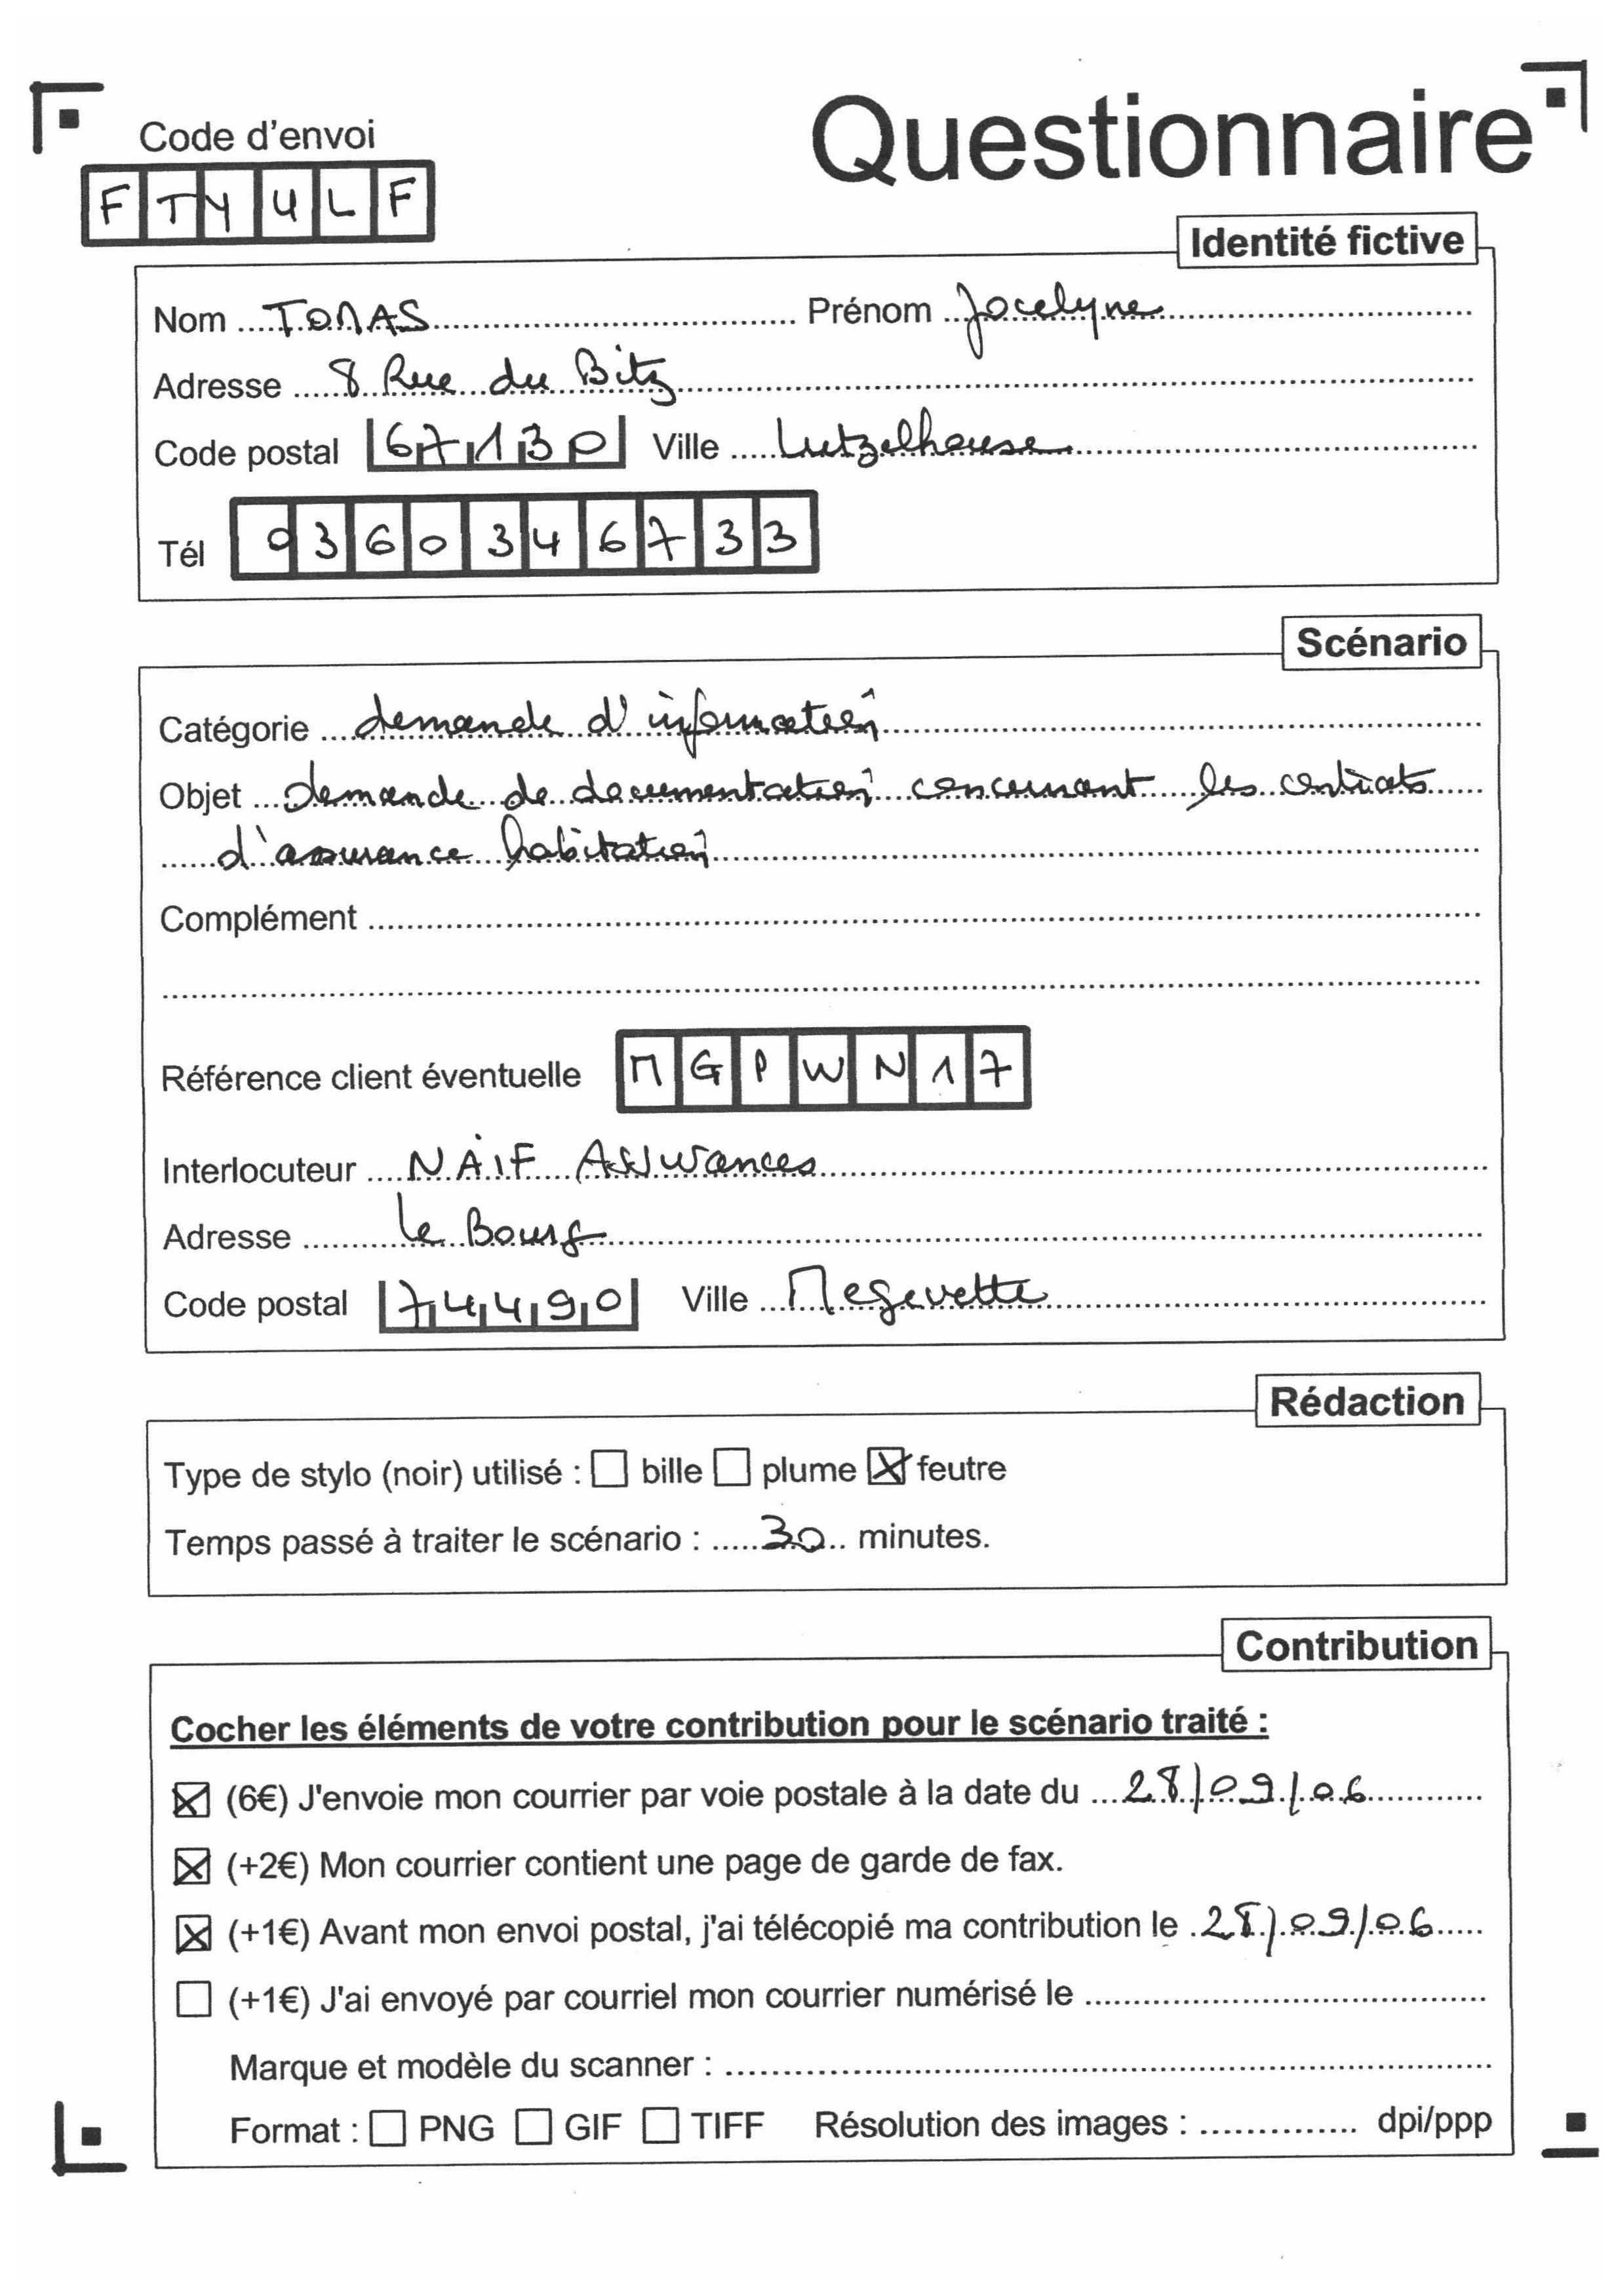 Questionnaire
Code d'envoi
FTY4LF
Identité fictive
Nom TOMAS Prénom Jocelyne
Adresse 8 Rue du Bitz
Code postal 67130 Ville Lutzelhouse
Tél 0360346733
Scénario
Catégorie demande d'information
Objet demande de documentation concernant les contrats
d'assurance habitation
Complément
Référence client éventuelle MGPWN17
Interlocuteur NAIF Assurances
Adresse Le Bourg
Code postal 74490 Ville Megevette
Rédaction
Type de stylo (noir) utilisé : ☐ bille ☐ plume ☒ feutre
Temps passé à traiter le scénario : 30 minutes.
Contribution
Cocher les éléments de votre contribution pour le scénario traité :
☒ (6€) J'envoie mon courrier par voie postale à la date du 28/09/06
☒ (+2€) Mon courrier contient une page de garde de fax.
☒ (+1€) Avant mon envoi postal, j'ai télécopié ma contribution le 28/09/06
☐ (+1€) J'ai envoyé par courriel mon courrier numérisé le
Marque et modèle du scanner :
Format : ☐ PNG ☐ GIF ☐ TIFF Résolution des images : dpi/ppp